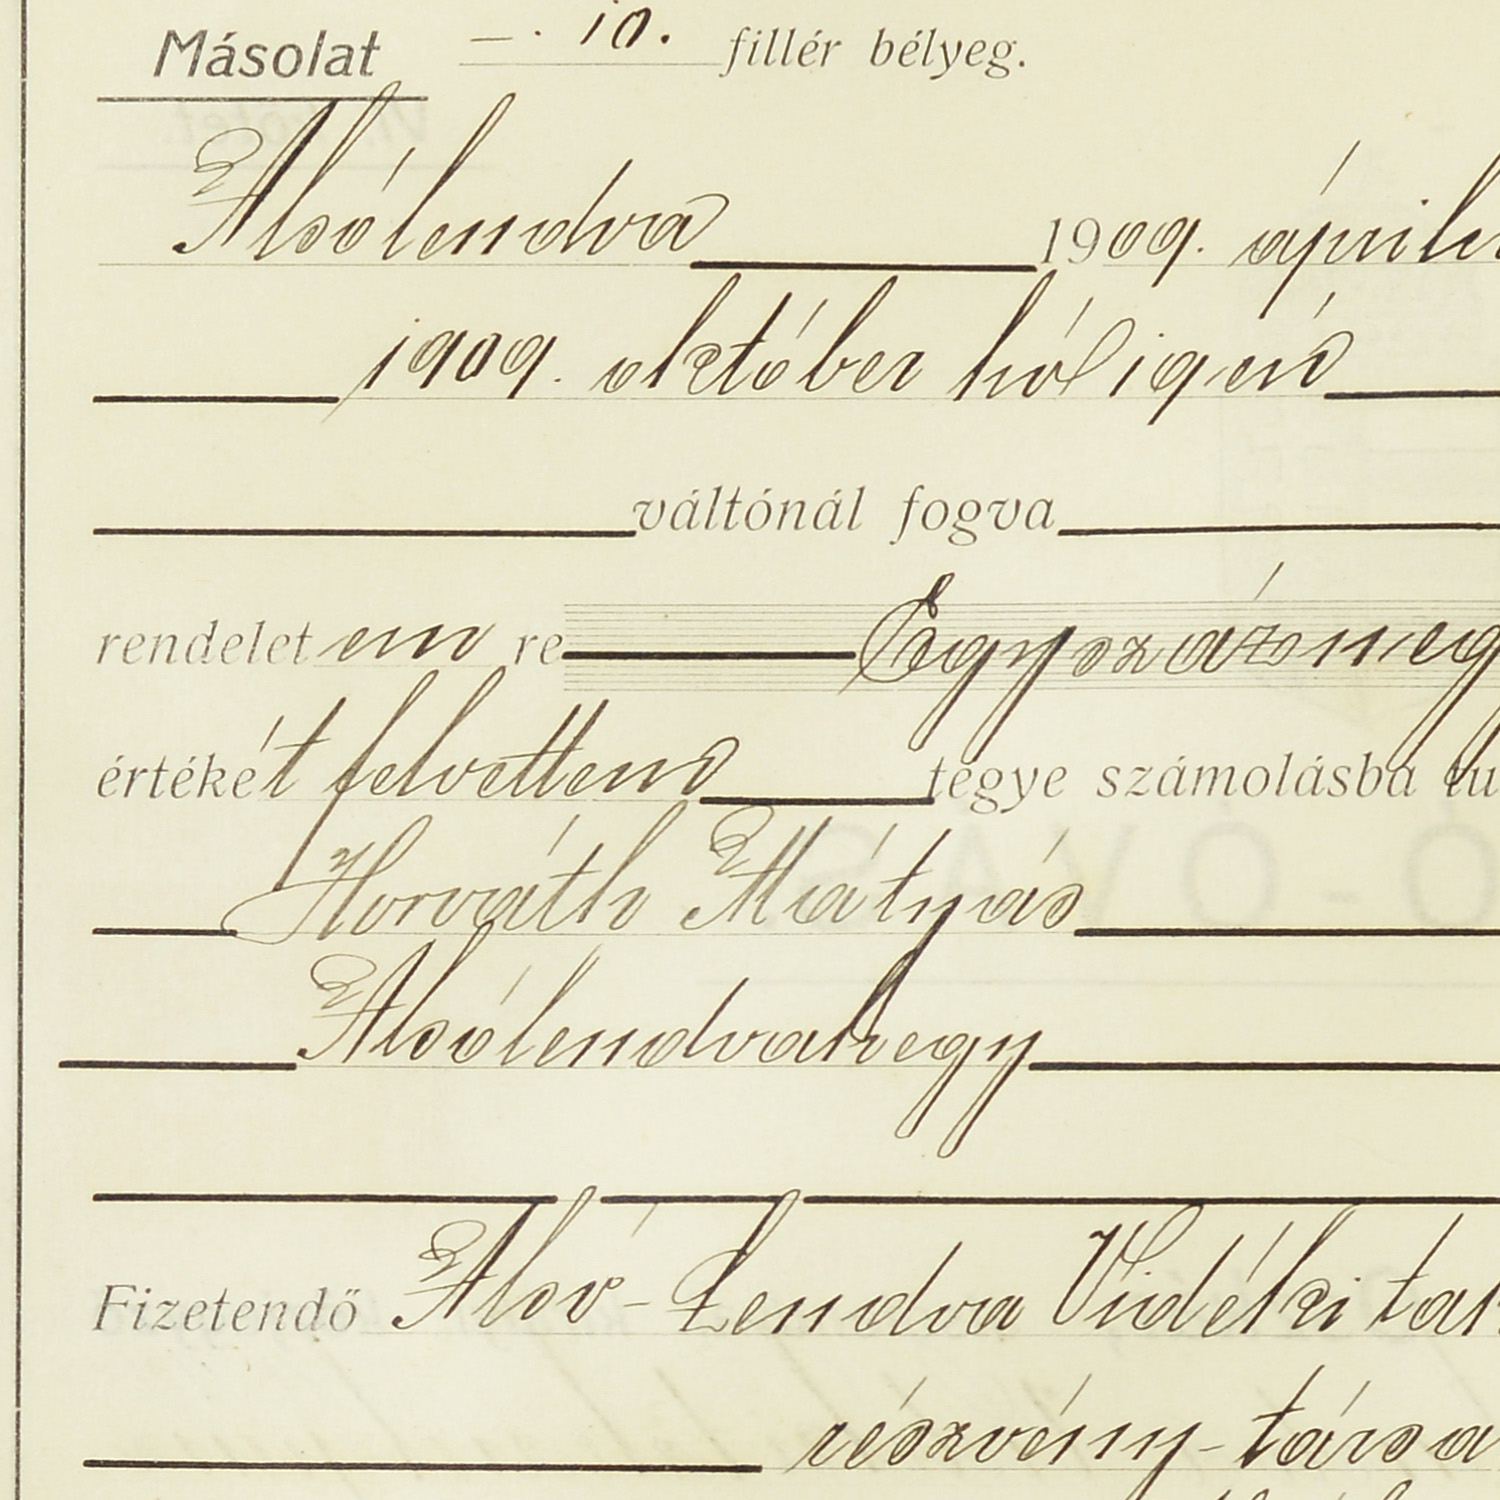 Másolat —. 10. fillér bélyeg.
Alsólendva 1909. április
1909. október hó 19 én
váltónál fogva
rendelet em re Egyszáznegy
értékét felvettem tegye számolásba tu
Horváth Mátyás
Alsólendvahegy
Fizetendő Alsó-Lendva Vidéki tak
részvény-társa